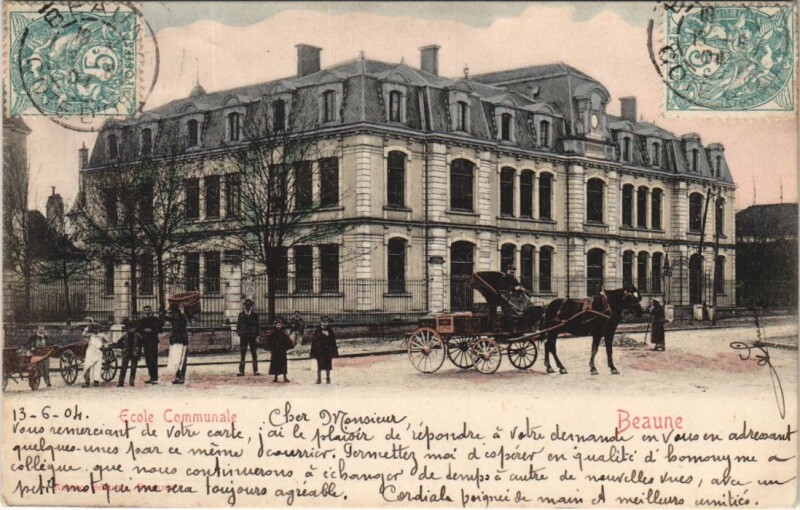 BEAUNE
5
5
13-6-04. Ecole Communale Cher Monsieur Beaune
Vous remerciant de votre carte, j'ai le plaisir de répondre à votre demande en vous en adressant
quelques-unes par ce même courrier. Permettez moi d'espérer en qualité d'homonyme &
collègue, que nous continuerons à échanger de temps à autre de nouvelles vues, avec un
petit mot qui me sera toujours agréable. Cordiale poignée de main & meilleurs amitiés.